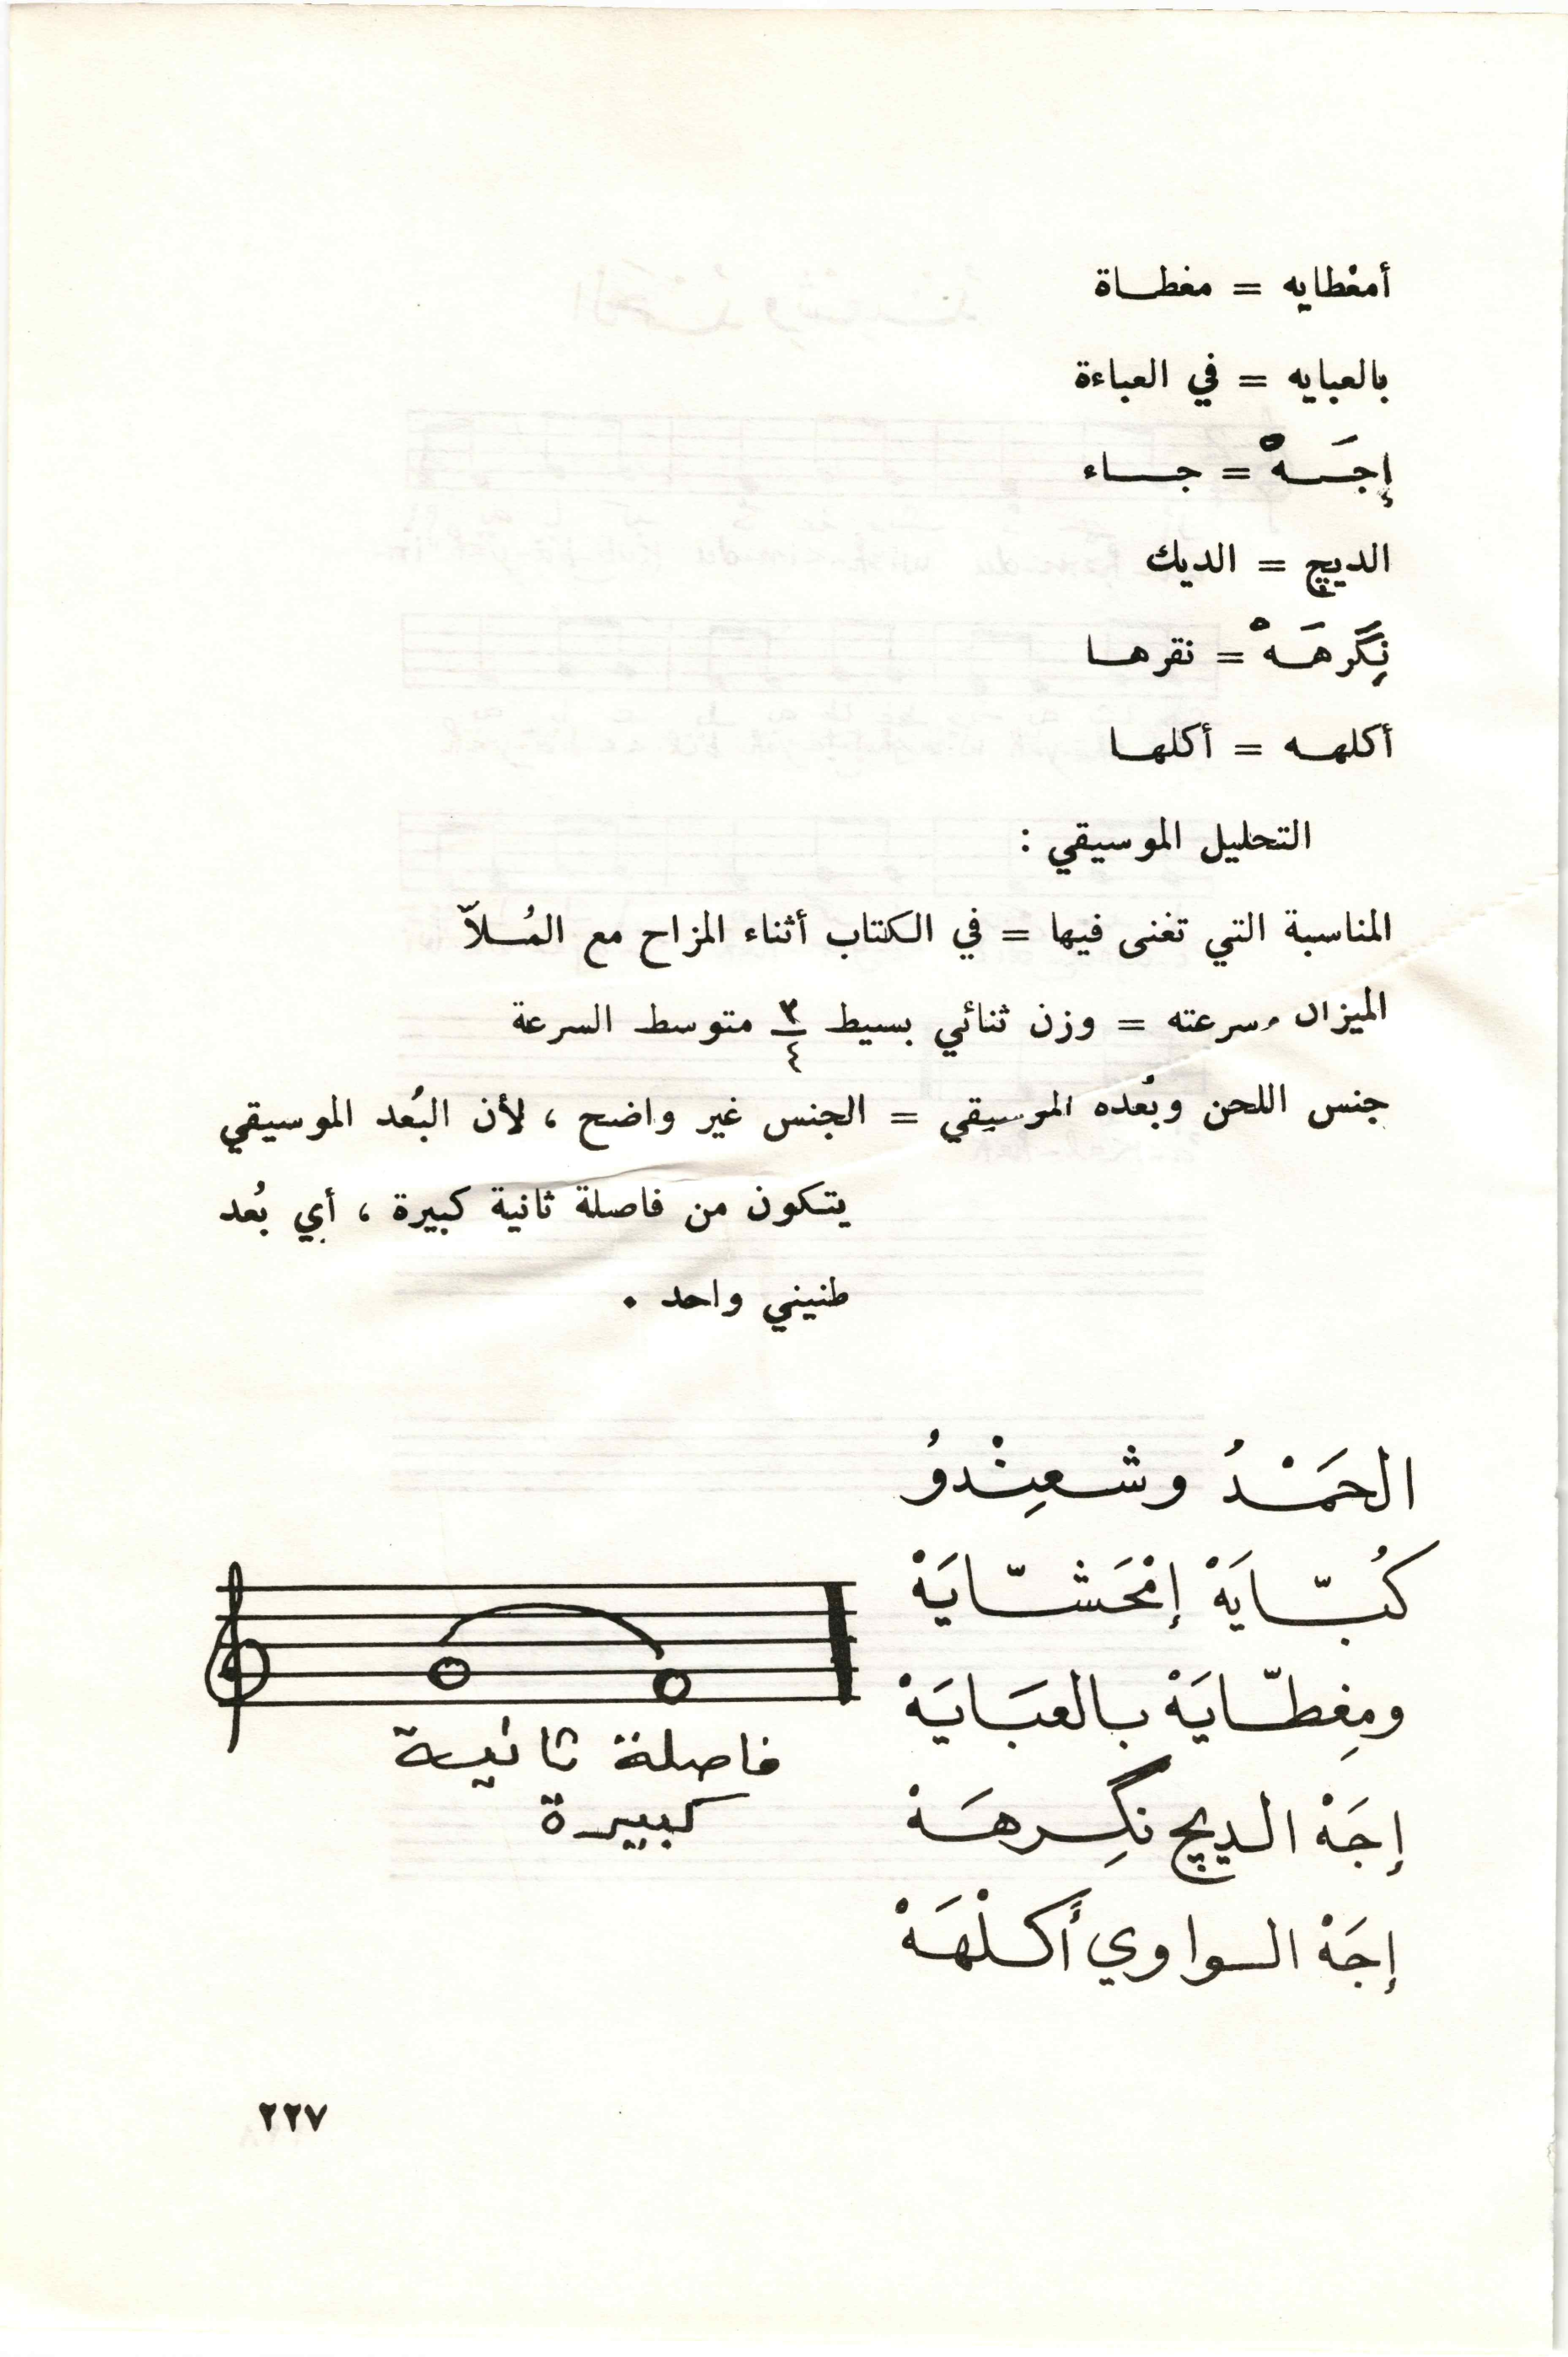 أمغْطايه = مغطاة
بالعبايه = في العباءة
إجَهْ = جاء
الديچ = الديك
نِگَرهَهْ = نقرها
أكلهه = أكلها
التحليل الموسيقي :
المناسبة التي تغنى فيها = في الكتاب أثناء المزاح مع المُلاّ
الميزان وسرعته = وزن ثنائي بسيط ٢/٤ متوسط السرعة
جنس اللحن وبُعده الموسيقي = الجنس غير واضح ، لأن البُعد الموسيقي
يتكون من فاصلة ثانية كبيرة ، أي بُعد
طنيني واحد .
الحَمْدُ وشعِنْدوُ
كُبّايَهْ إمْحَشّايَهْ
ومِغطّايَهْ بالعَبَايَهْ
إجَهْ الديچ نگِرهَهْ
إجَهْ الواوي أَكلْهَهْ
فاصلة ثانية
كبيرة
٢٢٧